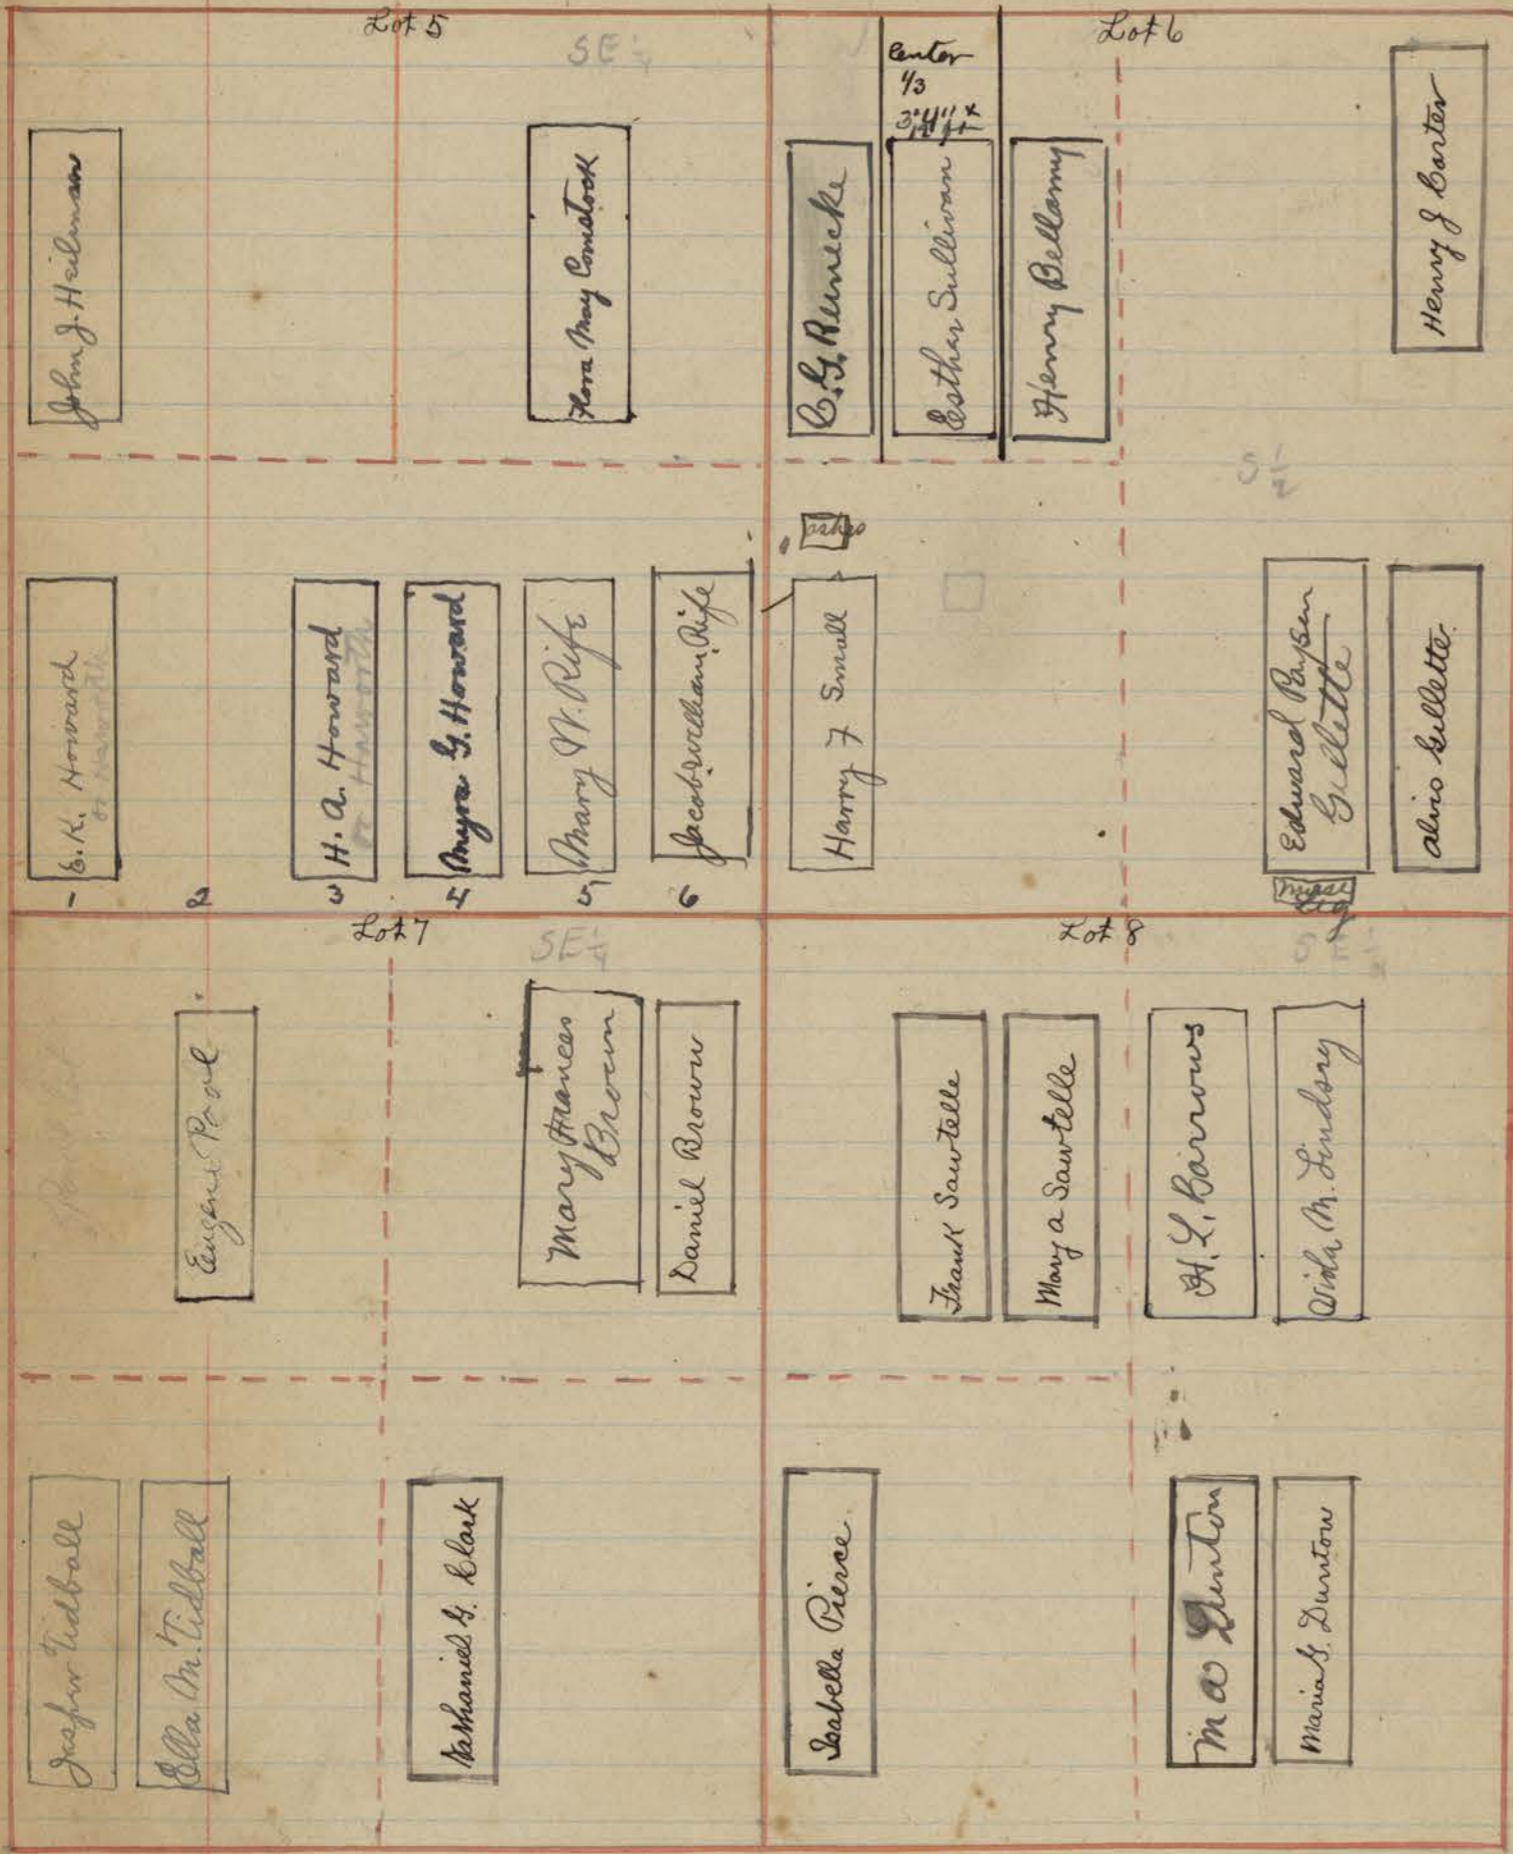 Lot 5
SE 1/4
John J. Heilman
Flora May Comstock
1
E. K. Howard
or Haworth
2
3
H. A. Howard
or Haworth
4
Myra G. Howard
5
Mary W. Rife
6
Jacob William Rife
Lot 6
Center
1/3
C. G. Reinecke
Esther Sullivan
Henry Bellamy
Henry J Carter
S 1/2
ashes
Harry F Small
Edward Payson
Gillette
Alvis Gillette
Lot 7
SE 1/4
Eugene Pool
Mary Frances
Brown
Daniel Brown
Jasper Tidball
Ella M. Tidball
Nathaniel G. Clark
Lot 8
Frank Sawtelle
Mary A Sawtelle
H. L. Barrows
Viola M. Lindsay
Isabella Pierce
M A Dunton
Maria G. Dunton